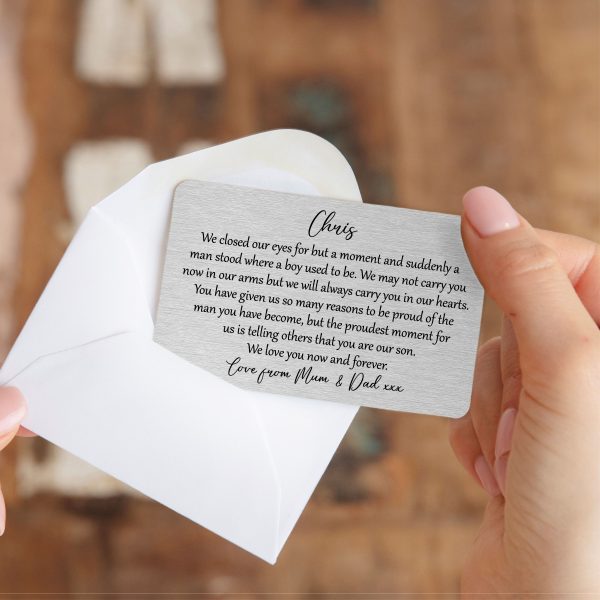 Chris
We closed our eyes for but a moment and suddenly a
man stood where a boy used to be. We may not carry you
now in our arms but we will always carry you in our hearts.
You have given us so many reasons to be proud of the
man you have become, but the proudest moment for
us is telling others that you are our son.
We love you now and forever.
Love from Mum & Dad xxx